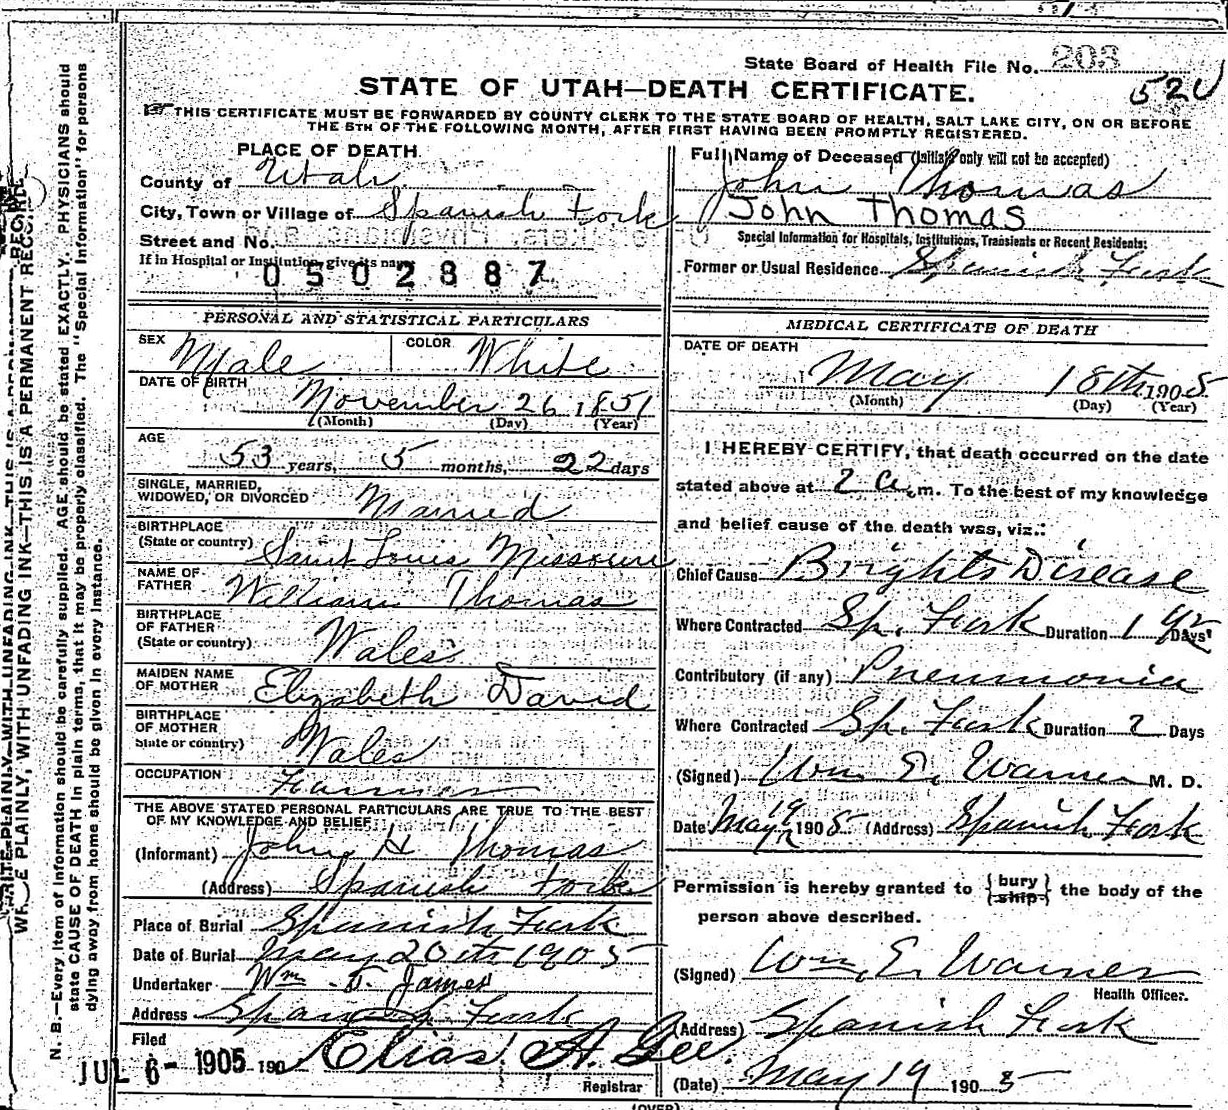 State Board of Health File No. 203
520
STATE OF UTAH—DEATH CERTIFICATE.
THIS CERTIFICATE MUST BE FORWARDED BY COUNTY CLERK TO THE STATE BOARD OF HEALTH, SALT LAKE CITY, ON OR BEFORE
THE 5TH OF THE FOLLOWING MONTH, AFTER FIRST HAVING BEEN PROMPTLY REGISTERED.
PLACE OF DEATH.
County of Utah
City, Town or Village of Spanish Fork
Street and No.
If in Hospital or Institution, give its name
0502887
Full Name of Deceased (Initials only will not be accepted)
John Thomas
John Thomas
Special Information for Hospitals, Institutions, Transients or Recent Residents:
Former or Usual Residence Spanish Fork
PERSONAL AND STATISTICAL PARTICULARS
SEX Male COLOR White
DATE OF BIRTH
November 26 1851
(Month) (Day) (Year)
AGE
53 years, 5 months, 22 days
SINGLE, MARRIED,
WIDOWED, OR DIVORCED Married
BIRTHPLACE
(State or country) Saint Louis Missouri
NAME OF
FATHER William Thomas
BIRTHPLACE
OF FATHER
(State or country) Wales
MAIDEN NAME
OF MOTHER Elizabeth David
BIRTHPLACE
OF MOTHER
State or country) Wales
OCCUPATION Farmer
THE ABOVE STATED PERSONAL PARTICULARS ARE TRUE TO THE BEST
OF MY KNOWLEDGE AND BELIEF
(Informant) John H Thomas
(Address) Spanish Fork
Place of Burial Spanish Fork
Date of Burial May 20th 1905
Undertaker Wm. F. James
Address Spanish Fork
Filed
JUL 6- 1905 190 Elias A. Gee.
Registrar
MEDICAL CERTIFICATE OF DEATH
DATE OF DEATH
May 18th 1905
(Month) (Day) (Year)
I HEREBY CERTIFY, that death occurred on the date
stated above at 2 a.m. To the best of my knowledge
and belief cause of the death was, viz.:
Chief Cause Brights Disease
Where Contracted Sp. Fork Duration 1 yr Days
Contributory (if any) Pneumonia
Where Contracted Sp. Fork Duration 2 Days
(Signed) Wm E. Warner M. D.
Date May 19 1905 (Address) Spanish Fork
Permission is hereby granted to {bury ship} the body of the
person above described.
(Signed) Wm. E. Warner
Health Officer.
(Address) Spanish Fork
(Date) May 19 1905
(OVER)
WRITE PLAINLY, WITH UNFADING INK—THIS IS A PERMANENT RECORD
N. B.—Every item of information should be carefully supplied. AGE should be stated EXACTLY. PHYSICIANS should
state CAUSE OF DEATH in plain terms, that it may be properly classified. The "Special Information" for persons
dying away from home should be given in every instance.